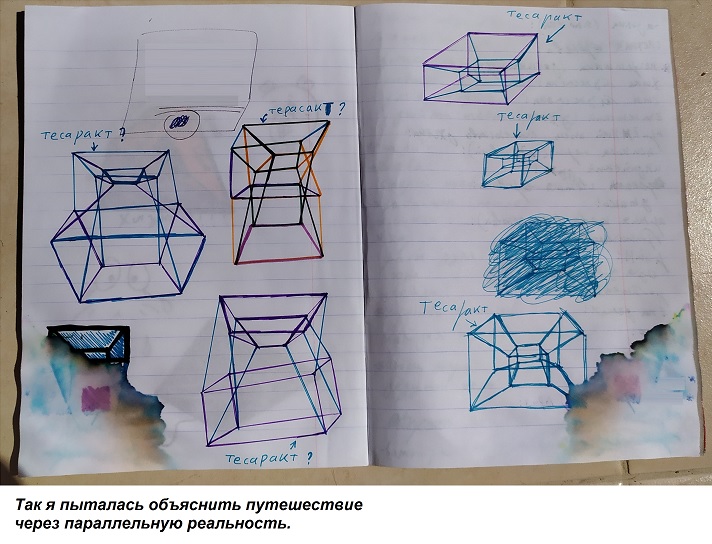 тесаракт ?
терасакт ?
тесаракт ?
тесаракт
тесаракт
Тесаракт
Так я пыталась объяснить путешествие
через параллельную реальность.